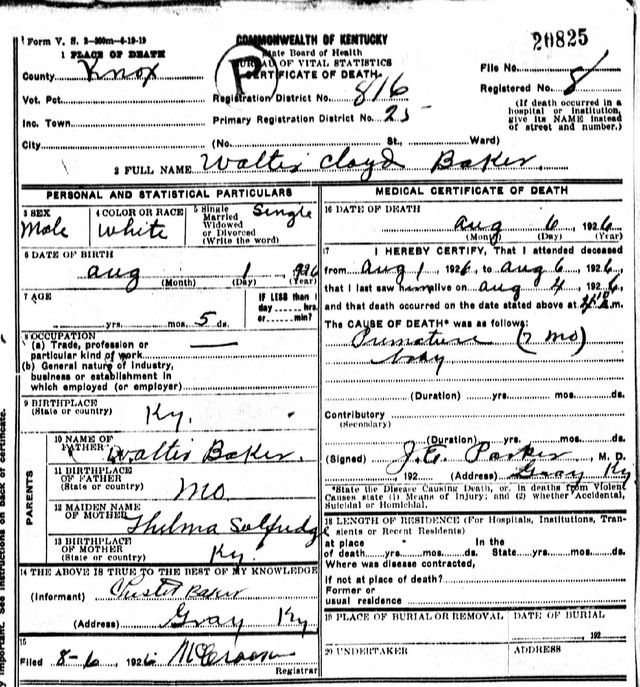 Form V. S. 3-300m-4-19-19
COMMONWEALTH OF KENTUCKY
State Board of Health
BUREAU OF VITAL STATISTICS
CERTIFICATE OF DEATH
P
20825
1 PLACE OF DEATH
County Knox
File No.
Registered No. 8
Vot. Pct.
Registration District No. 816
(If death occurred in a hospital or institution, give its NAME instead of street and number.)
Inc. Town
Primary Registration District No. 25
City (No. St., Ward)
2 FULL NAME Walter Cloyd Baker
PERSONAL AND STATISTICAL PARTICULARS
3 SEX Male
4 COLOR OR RACE White
5 Single Married Widowed or Divorced (Write the word) Single
6 DATE OF BIRTH
Aug 1 1926
(Month) (Day) (Year)
7 AGE
yrs. mos. 5 ds.
IF LESS than 1 day hrs. or min?
8 OCCUPATION
(a) Trade, profession or particular kind of work
(b) General nature of industry, business or establishment in which employed (or employer)
9 BIRTHPLACE
(State or country) Ky.
PARENTS
10 NAME OF FATHER Walter Baker.
11 BIRTHPLACE OF FATHER
(State or country) Mo.
12 MAIDEN NAME OF MOTHER Thelma
13 BIRTHPLACE OF MOTHER
(State or country) Ky.
14 THE ABOVE IS TRUE TO THE BEST OF MY KNOWLEDGE
(Informant) Baker
(Address) Gray Ky
15
Filed 8-6, 1926
Registrar
MEDICAL CERTIFICATE OF DEATH
16 DATE OF DEATH
Aug 6, 1926
(Month) (Day) (Year)
17 I HEREBY CERTIFY, That I attended deceased
from Aug 1 1926, to Aug 6 1926,
that I last saw him alive on Aug 4, 1926
and that death occurred on the date stated above at m.
The CAUSE OF DEATH* was as follows:
Premature (7 Mo)
baby
(Duration) yrs. mos. ds.
Contributory
(Secondary)
(Duration) yrs. mos. ds.
(Signed) Parker, M. D.
, 192 (Address) Gray Ky
*State the Disease Causing Death, or, in deaths from Violent Causes state (1) Means of Injury; and (2) whether Accidental, Suicidal or Homicidal.
18 LENGTH OF RESIDENCE (For Hospitals, Institutions, Transients or Recent Residents)
at place In the
of death yrs. mos. ds. State yrs. mos. ds.
Where was disease contracted,
if not at place of death?
Former or
usual residence
19 PLACE OF BURIAL OR REMOVAL DATE OF BURIAL
, 192
20 UNDERTAKER ADDRESS
important. See instructions on back of certificate.